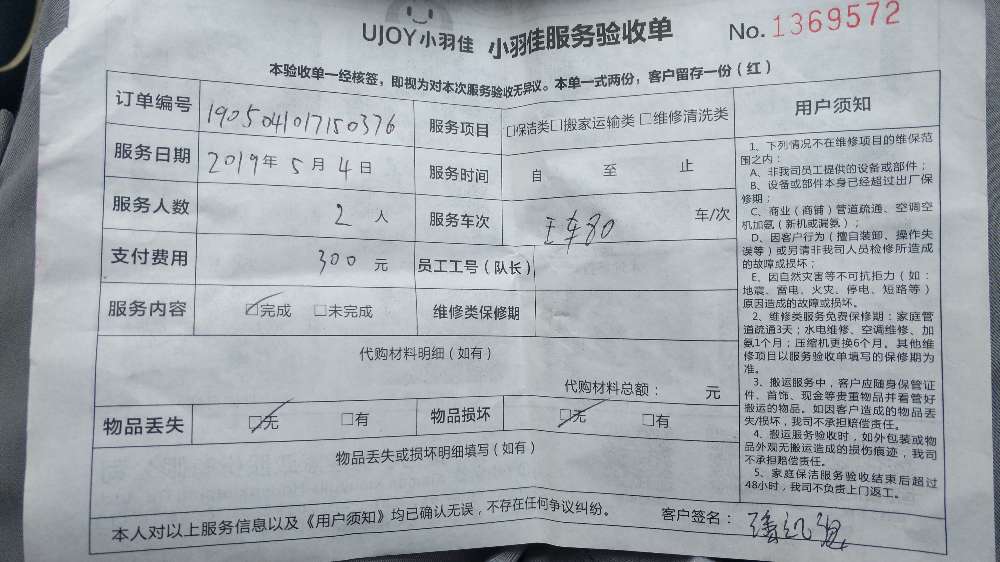 UJOY小羽佳 小羽佳服务验收单 No. 1369572
本验收单一经核签，即视为对本次服务验收无异议。本单一式两份，客户留存一份（红）
订单编号 1905041017150376 服务项目 □保洁类□搬家运输类 □维修清洗类
服务日期 2019年 5 月 4 日 服务时间 自 至 止
服务人数 2 人 服务车次 车80 车/次
支付费用 300 元 员工工号（队长）
服务内容 ☑完成 □未完成 维修类保修期
代购材料明细（如有）
代购材料总额： 元
物品丢失 ☑无 □有 物品损坏 ☑无 □有
物品丢失或损坏明细填写（如有）
本人对以上服务信息以及《用户须知》均已确认无误，不存在任何争议纠纷。 客户签名：
用户须知
1、下列情况不在维修项目的维保范
围之内：
A、非我司员工提供的设备或部件；
B、设备或部件本身已经超过出厂保
修期；
C、商业（商铺）管道疏通、空调空
机加氨（新机或漏氨）；
D、因客户行为（擅自装卸、操作失
误等）或另请非我司人员检修所造成
的故障或损坏；
E、因自然灾害等不可抗拒力（如：
地震、雷电、火灾、停电、短路等）
原因造成的故障或损坏。
2、维修类服务免费保修期：家庭管
道疏通3天；水电维修、空调维修、加
氨1个月；压缩机更换6个月。其他维
修项目以服务验收单填写的保修期为
准。
3、搬运服务中，客户应随身保管证
件、首饰、现金等贵重物品并看管好
搬运的物品。如因客户造成的物品丢
失/损坏，我司不承担赔偿责任。
4、搬运服务验收时，如外包装或物
品外观无搬运造成的损伤痕迹，我司
不承担赔偿责任。
5、家庭保洁服务验收结束后超过
48小时，我司不负责上门返工。